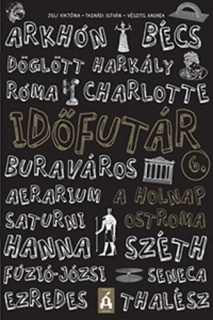 ZOLI VIKTÓRIA - TASNÁDI ISTVÁN - VÉSZITS ANDREA
ARKHÓN BÉCS
DÖGLÖTT HARKÁLY
RÓMA CHARLOTTE
IDŐFUTÁR
BURAVÁROS 6.
AERARIUM A HOLNAP
SATURNI OSTROMA
HANNA SZÉTH
FÚZIÓ-JÓZSI SENECA
EZREDES Á THALÉSZ